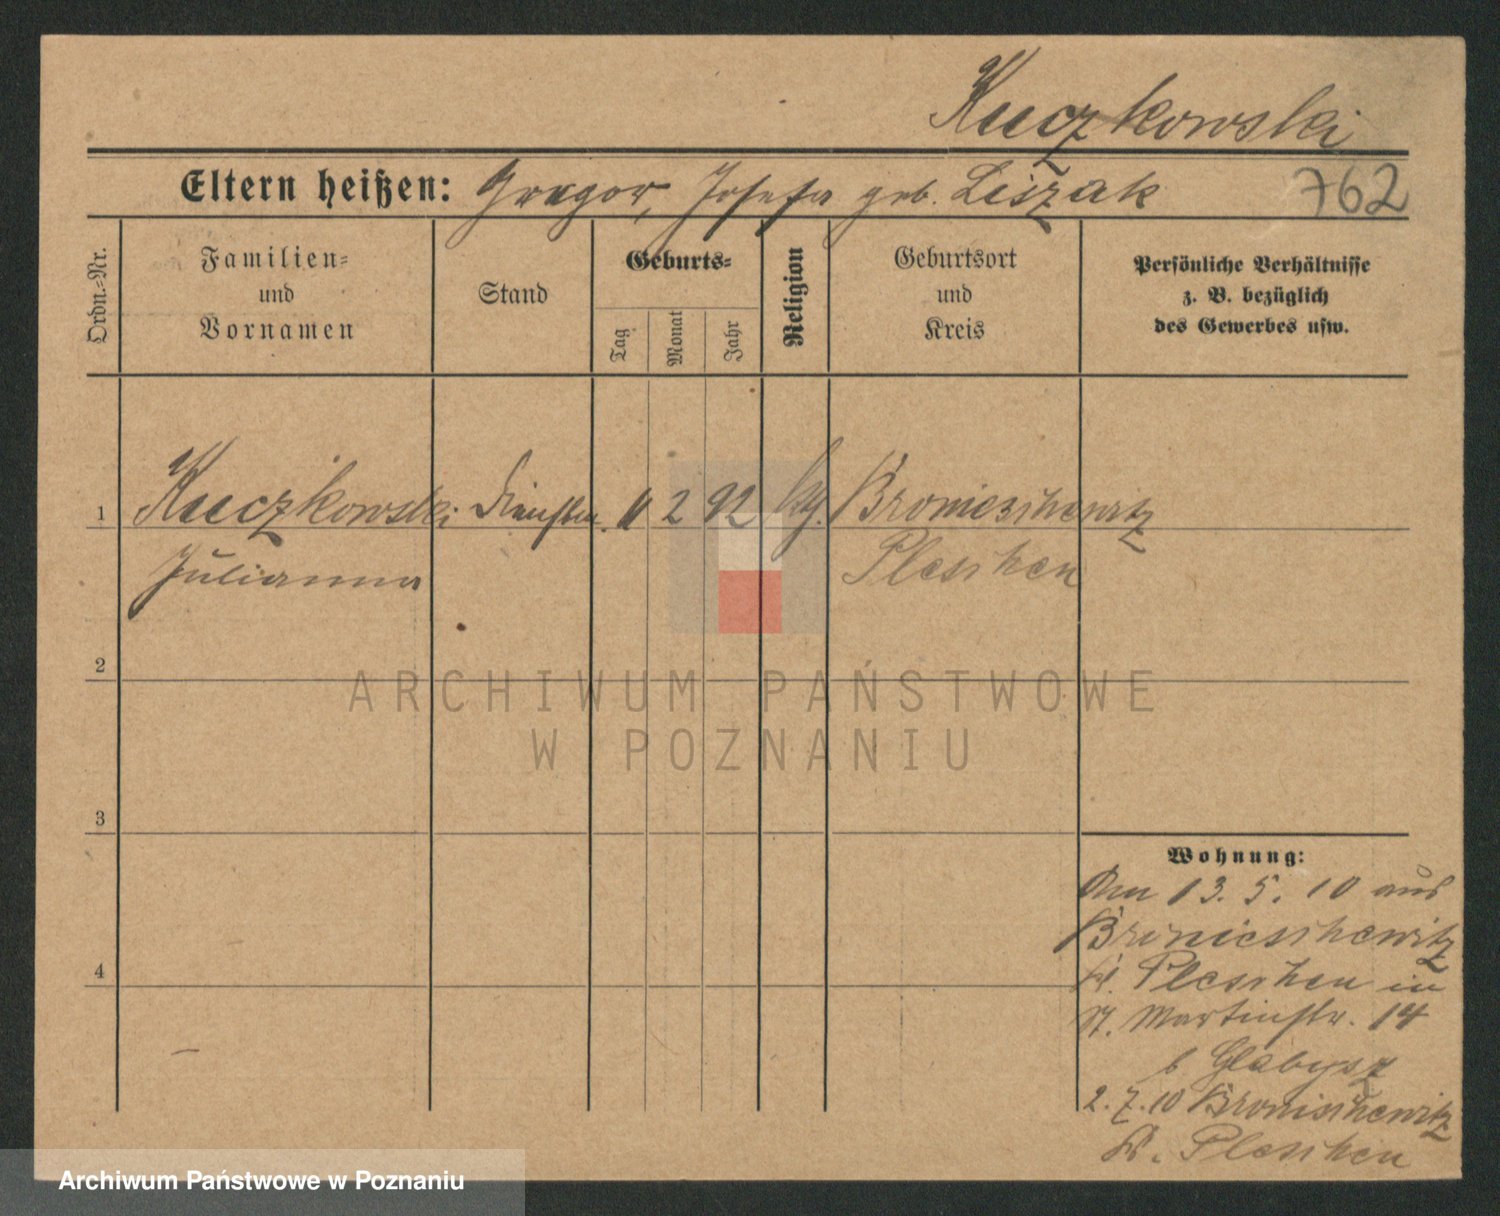 Kuczkowski
Eltern heißen: Gregor, Josefa geb. Liszak 762
Ordn.-Nr.
Familien-
und
Vornamen
Stand
Geburts-
Tag
Monat
Jahr
Religion
Geburtsort
und
Kreis
Persönliche Verhältnisse
z. B. bezüglich
des Gewerbes usw.
1 Kuczkowski Dienstm. 11 2 92 kth. Bronieschewitz
Julianna Pleschen
2
3
4
ARCHIWUM PAŃSTWOWE
W POZNANIU
Wohnung:
Am 13. 5. 10 aus
Bronieschewitz
Kr. Pleschen in
St. Martinstr. 14
b Glabysz
2. 7. 10 Bronischewitz
Kr. Pleschen
Archiwum Państwowe w Poznaniu